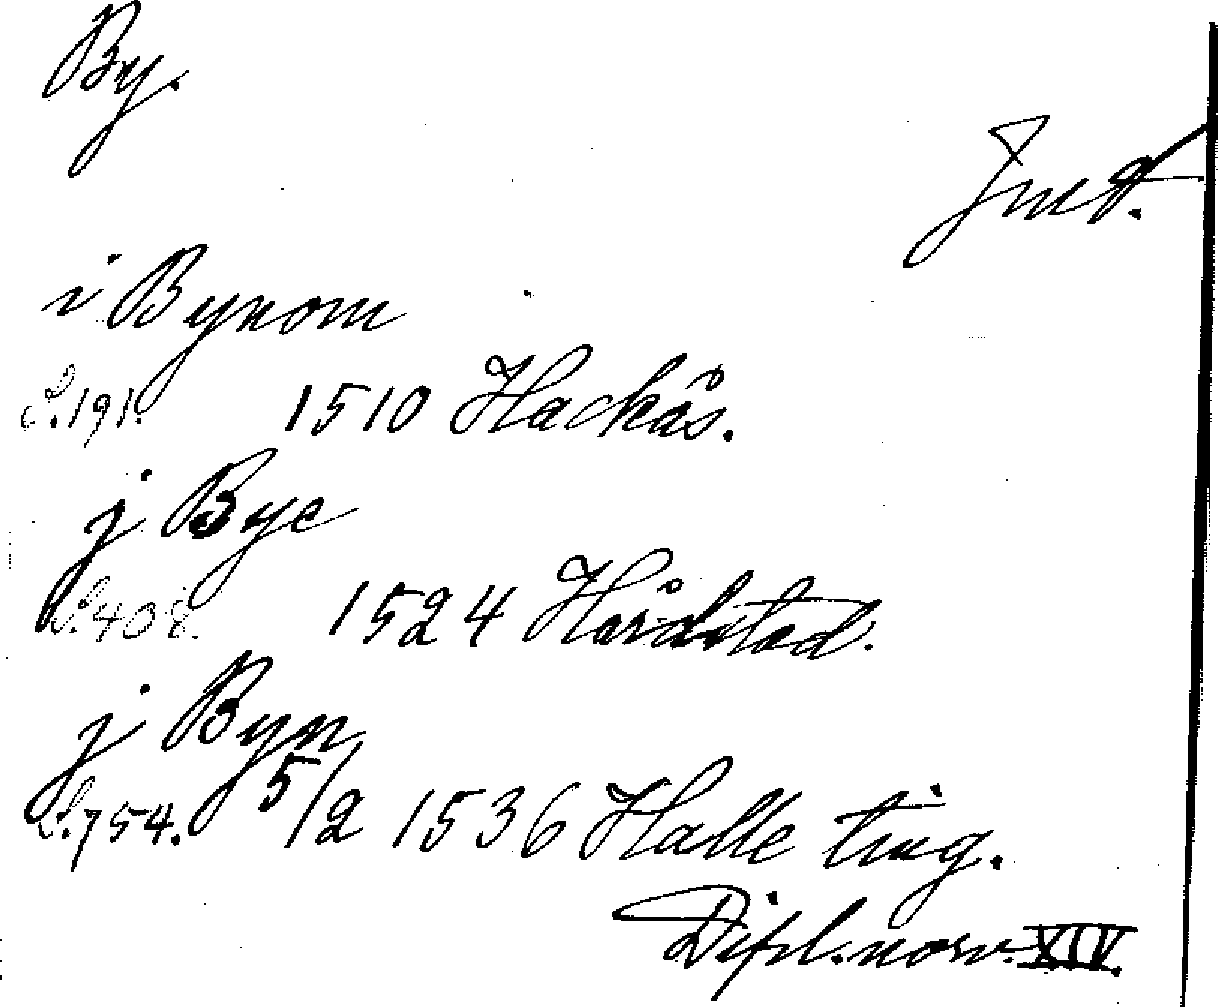 By.
Jmt.
i Bynom
S. 191. 1510 Hackås.
j Bye
S. 408. 1524 Hårdstad.
j Byn
S. 754. 5/2 1536 Halle ting.
Dipl. norv. XIV.